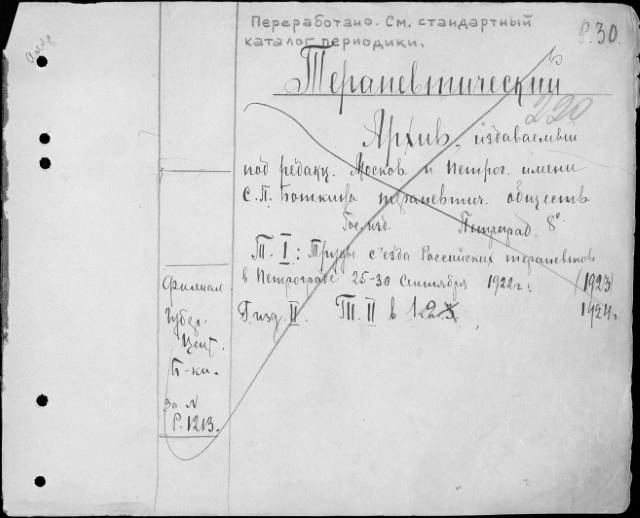 Переработано. См. стандартный
каталог периодики.
P.30
Терапевтический
220
Архив, издаваемый
под редакц. Москов. и Петрог. имени
С.П. Боткина терапевтич. обществ
Гос. изд. Петроград. 8°
Т. I: Труды с'езда Российских терапевтов
в Петрограде 25-30 Сентября 1922г. (1923)
Г. изд. II. Т. II в 1 2 3 1924г.
Филиал.
Губер.
Цент.
Б-ки.
За №
Р.1213.